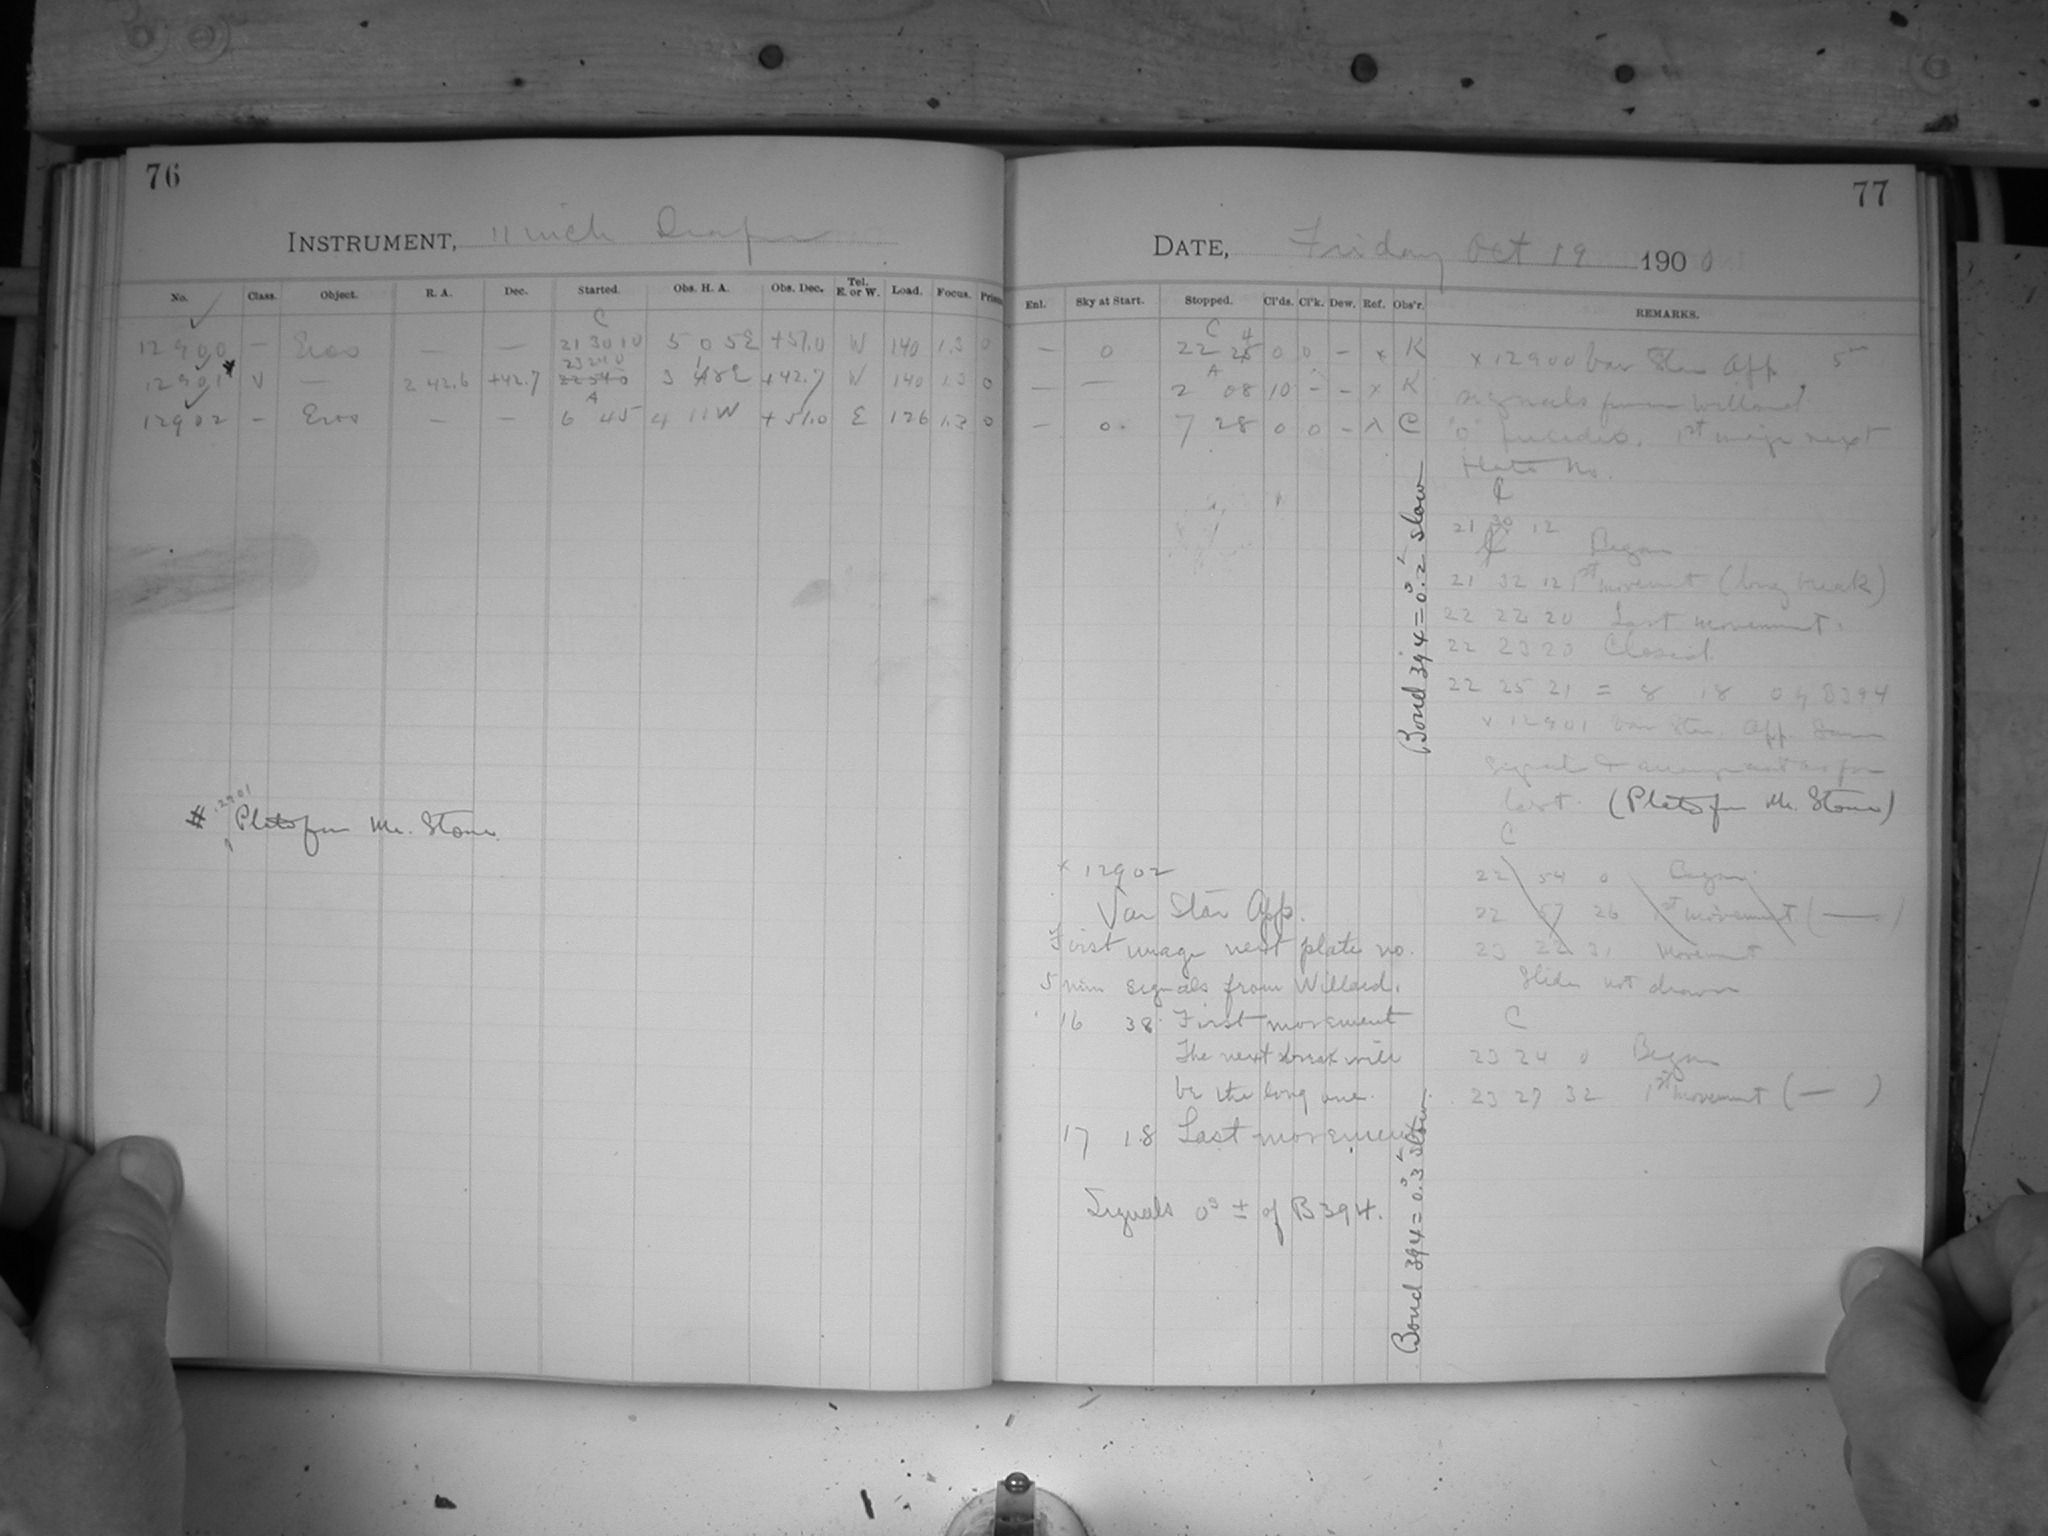 76
INSTRUMENT, 11 inch Draper
No. Class. Object. R. A. Dec. Started. Obs. H. A. Obs. Dec. Tel. E. or W. Load. Focus. Prism
C
12900 — Eros — — 21 30 10 5 05E +51.0 W 140 1.3 0
23 24 0
12901 V — 2 42.6 +42.7 22 54 0 3 48E +42.7 W 140 1.3 0
A
12902 — Eros — — 6 45 4 11W +51.0 E 126 1.3 0
12901
# Plates for Mr. Stone
77
DATE, Friday Oct 19 1900
Enl. Sky at Start. Stopped. Cl'ds. Cl'k. Dew. Ref. Obs'r. REMARKS.
C 4
— 0 22 25 0 0 — x K
A
— — 2 08 10 - - x K
— 0. 7 28 0 0 - x C
x 12900 Var Star App 5m
signals from Willard
"0" 1st image next
plate no.
C
21 30 12 Began
21 32 12 1st movement (long break)
22 22 20 Last movement.
22 23 20 Closed.
22 25 21 = 8 18 0 of B394
x 12901 Var Star. App. Same
signal & arrangement as for
last. (Plates for Mr. Stone)
C
22 54 0 Began.
22 57 26 1st movement (—)
23 22 31 Movement
Slide not drawn
C
23 24 0 Began
23 27 32 1st movement (— )
Bond 394 = 0.2s slow
x 12902
Var Star App.
First image next plate no.
5 min signals from Willard.
16 38 First movement
The next break will
be the long one.
17 18 Last movement
Signals 0s ± of B394.
Bond 394 = 0.3s slow.